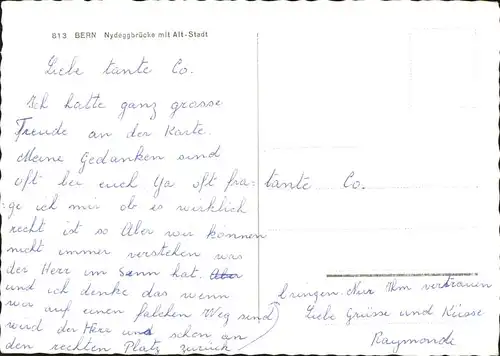 813 BERN Nydeggbrücke mit Alt-Stadt
Liebe tante Co.
Ich hatte ganz grosse
Freude an der Karte.
Meine Gedanken sind
oft bei euch Ya oft fra-
ge ich mir ob es wirklich
recht ist so Aber wir können
nicht immer verstehen was
der Herr im Senn hat. Aber
und ich denke das wenn
wir auf einen falchen Weg send
wird der Herr und schon an
den rechten Platz zurück
tante Co.
bringen. Nur Ihm vertrauen
Liebe Grüsse und Küsse
Raymonde